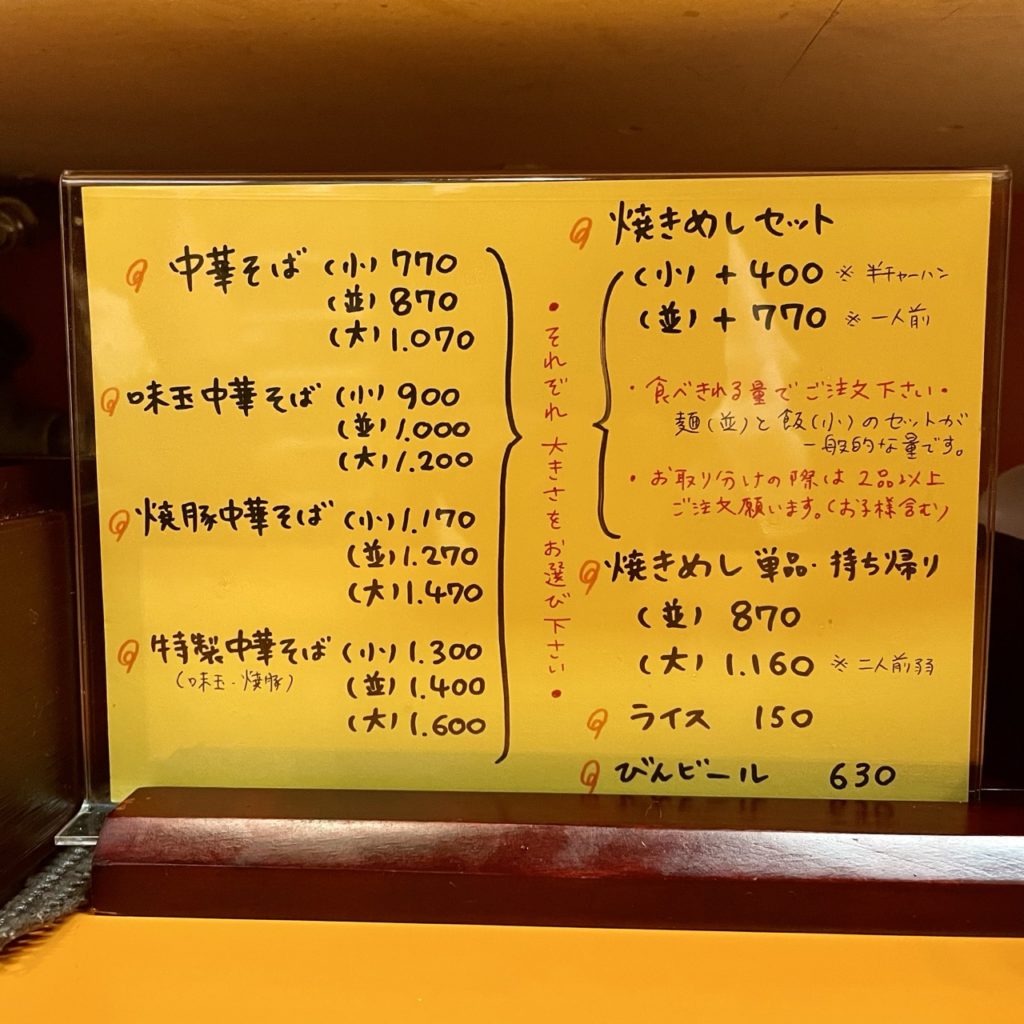 中華そば (小) 770
(並) 870
(大) 1.070
味玉中華そば (小) 900
(並) 1.000
(大) 1.200
焼豚中華そば (小) 1.170
(並) 1.270
(大) 1.470
特製中華そば (小) 1.300
(味玉・焼豚) (並) 1.400
(大) 1.600
・それぞれ 大きさを お選び下さい・
焼きめしセット
(小) + 400 ※ 半チャーハン
(並) + 770 ※ 一人前
・食べきれる量でご注文下さい・
麺(並)と飯(小)のセットが
一般的な量です。
・お取り分けの際は 2品以上
ご注文願います。(お子様含む)
焼きめし 単品・持ち帰り
(並) 870
(大) 1.160 ※ 二人前弱
ライス 150
びんビール 630